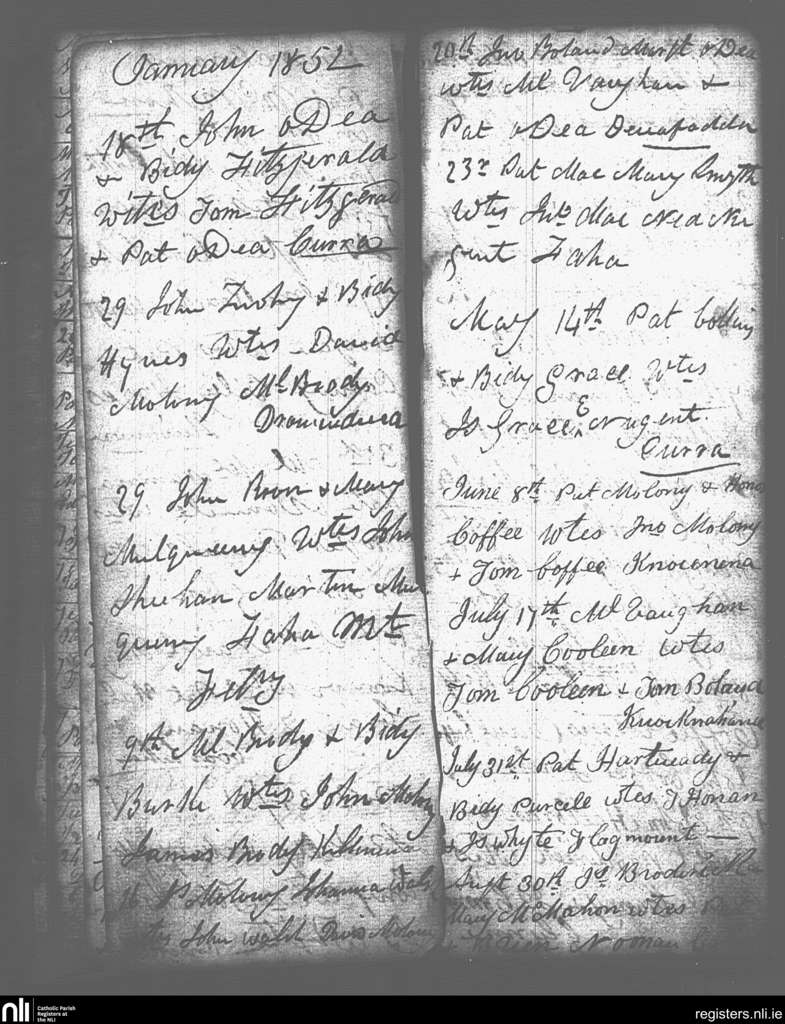 January 1852
18th John oDea
& Bidy Fitzgerald
Wites Tom Fitzgerald
& Pat oDea Curra
29 John & Bidy
Hynes Wtes David
Molony Ml Brody
29 John & Mary
Mulqueeny Wtes John
Sheehan Martin Mul
queeny Faha Mts
9th Ml Brody & Bidy
Burke Wtes John Molony
James Brody
16 Molony Walsh
John Walsh Molony
20th Jno Boland Margt oDea
wtes Ml Vaughan &
Pat oDea
23rd Pat Mac Mary Smyth
Wtes Jno Mac
Faha
May 14th Pat Collins
& Bidy Grace Wtes
Js Grace E Nugent
Curra
June 8th Pat Molony & Hono
Coffee Wtes Jno Molony
& Tom Coffee
July 17th Ml Vaughan
& Mary Cooleen wtes
Tom Cooleen & Tom Boland
July 31st Pat &
Bidy Purcell wtes J Honan
& Js Whyte Flagmount —
30th
Mary McMahon wtes Pat
Noonan
nli
Catholic Parish
Registers at
the NLI
registers.nli.ie